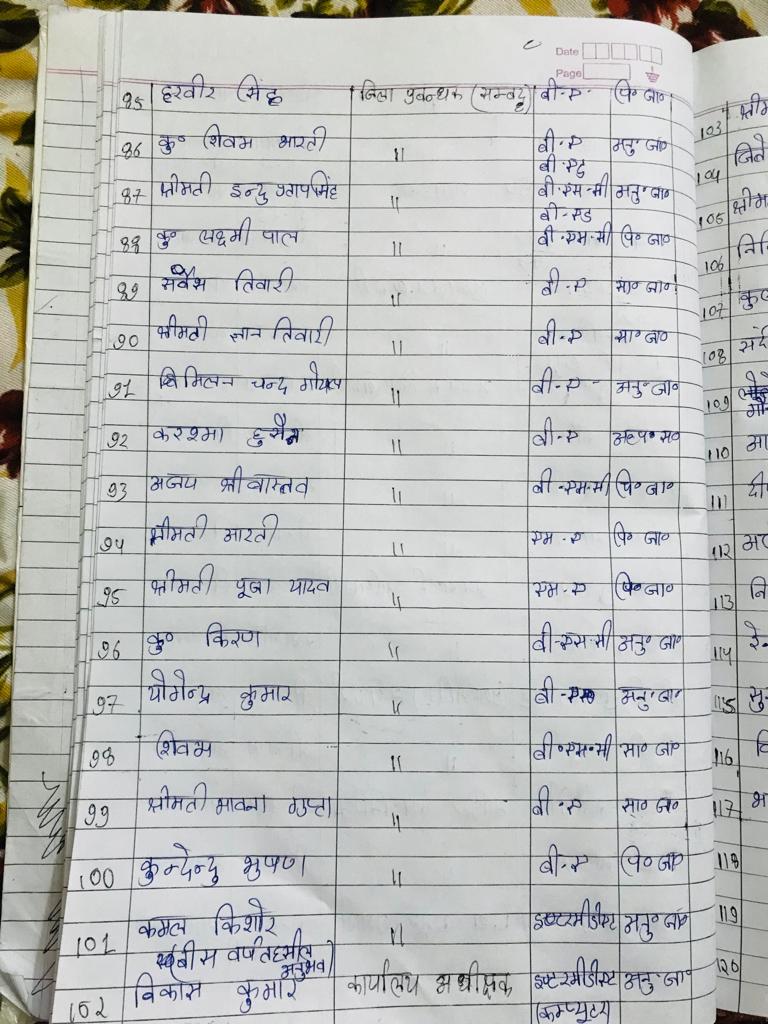 Date
Page
85 हरवीर सिंह जिला प्रबन्धक (सम्बद्ध) बी.ए. पि० जा०
86 कु० शिवम भारती " बी.ए अनु० जा०
बी.एड
87 श्रीमती इन्दु प्रतापसिंह " बी.एस.सी अनु० जा०
बी.एड
88 कु० लक्ष्मी पाल " बी.एस.सी पि० जा०
89 सर्वेश तिवारी " बी.ए सा० जा०
90 श्रीमती ज्ञान तिवारी " बी.ए सा० जा०
91 मिलन चन्द गोयल " बी.ए अनु० जा०
92 करश्मा हुसैन " बी.ए अल्प० स०
93 अजय श्रीवास्तव " बी.एस.सी पि० जा०
94 श्रीमती भारती " एम.ए पि० जा०
95 श्रीमती पूजा यादव " एम.ए पि० जा०
96 कु० किरण " बी.एस.सी अनु० जा०
97 योगेन्द्र कुमार " अनु० जा०
98 शिवम " बी.एस.सी सा० जा०
99 श्रीमती भावना गुप्ता " बी.ए सा० जा०
100 कुन्देन्दु भुषण " बी.ए पि० जा०
101 कमल किशोर " इण्टरमीडीएट अनु० जा०
(बीस वर्ष तहसील
अनुभव)
102 विकास कुमार कार्यालय अधीक्षक इण्टरमीडीएट अनु० जा०
(कम्प्यूटर)
103 श्रीम
104 जिते
105 श्रीम
106
107 कु
108 संदे
109
110 मा
111 दी
112
113 नि
114 रे
115 सु
116 वि
117 भ
118
119
120